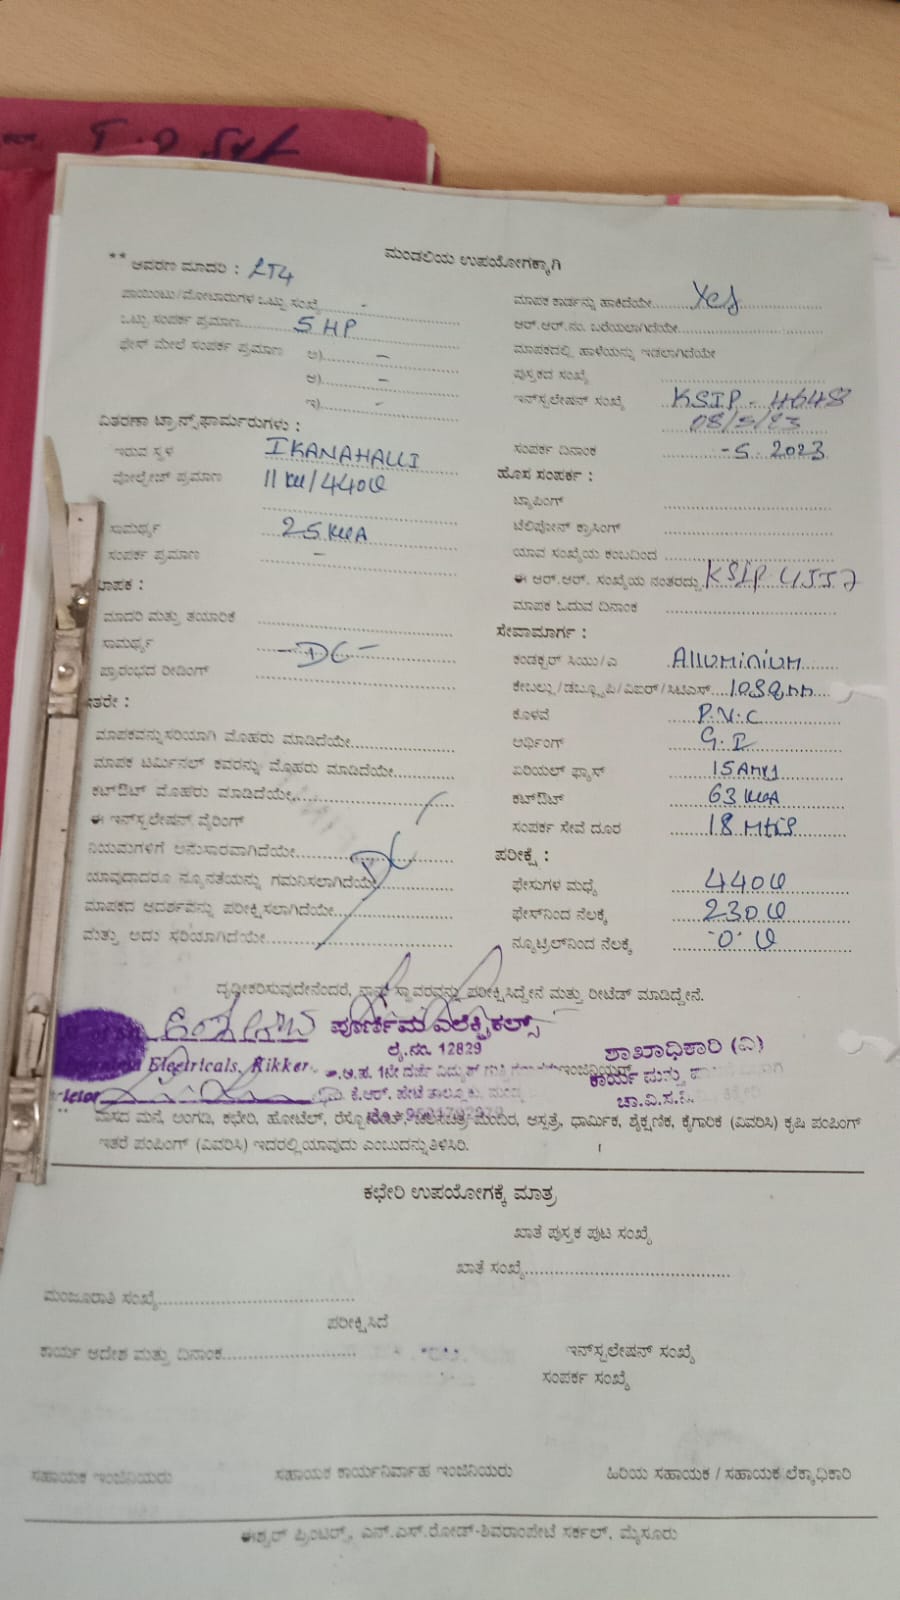 ಮಂಡಲಿಯ ಉಪಯೋಗಕ್ಕಾಗಿ
** ಆವರಣ ಮಾದರಿ : LT4
ಪಾಯಿಂಟು/ಮೋಟಾರುಗಳ ಒಟ್ಟು ಸಂಖ್ಯೆ -
ಒಟ್ಟು ಸಂಪರ್ಕ ಪ್ರಮಾಣ 5 HP
ಫೇಸ್ ಮೇಲೆ ಸಂಪರ್ಕ ಪ್ರಮಾಣ ಅ) -
ಆ) -
ಇ) -
ವಿತರಣಾ ಟ್ರಾನ್ಸ್‌ಫಾರ್ಮರುಗಳು :
ಇರುವ ಸ್ಥಳ IKANAHALLI
ವೋಲ್ಟೇಜ್ ಪ್ರಮಾಣ 11 KV/440V
ಸಾಮರ್ಥ್ಯ 25 KVA
ಸಂಪರ್ಕ ಪ್ರಮಾಣ -
ಮಾಪಕ :
ಮಾದರಿ ಮತ್ತು ತಯಾರಿಕೆ
ಸಾಮರ್ಥ್ಯ - DC -
ಪ್ರಾರಂಭದ ರೀಡಿಂಗ್
ಇತರೇ :
ಮಾಪಕವನ್ನು ಸರಿಯಾಗಿ ಮೊಹರು ಮಾಡಿದೆಯೇ
ಮಾಪಕ ಟರ್ಮಿನಲ್ ಕವರನ್ನು ಮೊಹರು ಮಾಡಿದೆಯೇ
ಕಟ್‌ಔಟ್ ಮೊಹರು ಮಾಡಿದೆಯೇ
ಈ ಇನ್‌ಸ್ಟಲೇಷನ್ ವೈರಿಂಗ್
ನಿಯಮಗಳಿಗೆ ಅನುಸಾರವಾಗಿದೆಯೇ
ಯಾವುದಾದರೂ ನ್ಯೂನತೆಯನ್ನು ಗಮನಿಸಲಾಗಿದೆಯೇ
ಮಾಪಕದ ಆದರ್ಶವನ್ನು ಪರೀಕ್ಷಿಸಲಾಗಿದೆಯೇ
ಮತ್ತು ಅದು ಸರಿಯಾಗಿದೆಯೇ
ಮಾಪಕ ಕಾರ್ಡನ್ನು ಹಾಕಿದೆಯೇ Yes
ಆರ್.ಆರ್.ನಂ. ಬರೆಯಲಾಗಿದೆಯೇ
ಮಾಪಕದಲ್ಲಿ ಹಾಳೆಯನ್ನು ಇಡಲಾಗಿದೆಯೇ
ಪುಸ್ತಕದ ಸಂಖ್ಯೆ
ಇನ್‌ಸ್ಟಲೇಷನ್ ಸಂಖ್ಯೆ KSIP - 4648
08/5/23
ಸಂಪರ್ಕ ದಿನಾಂಕ -5. 2023
ಹೊಸ ಸಂಪರ್ಕ :
ಟ್ಯಾಪಿಂಗ್
ಟೆಲಿಫೋನ್ ಕ್ರಾಸಿಂಗ್
ಯಾವ ಸಂಖ್ಯೆಯ ಕಂಬದಿಂದ
ಈ ಆರ್.ಆರ್. ಸಂಖ್ಯೆಯ ನಂತರದ್ದು KSIP
ಮಾಪಕ ಓದುವ ದಿನಾಂಕ
ಸೇವಾಮಾರ್ಗ :
ಕಂಡಕ್ಟರ್ ಸಿಯು/ಎ Alluminium
ಕೇಬಲ್ಲು/ಡಬ್ಲ್ಯೂಪಿ/ವಿಐಆರ್/ಸಿಟಿಎಸ್ 10SQmm
ಕೊಳವೆ P.V.C
ಅರ್ಥಿಂಗ್ G.I
ಏರಿಯಲ್ ಫ್ಯೂಸ್ 15Amps
ಕಟ್‌ಔಟ್ 63 KVA
ಸಂಪರ್ಕ ಸೇವೆ ದೂರ 18 Mtrs
ಪರೀಕ್ಷೆ :
ಫೇಸುಗಳ ಮಧ್ಯೆ 440V
ಫೇಸ್‌ನಿಂದ ನೆಲಕ್ಕೆ 230V
ನ್ಯೂಟ್ರಲ್‌ನಿಂದ ನೆಲಕ್ಕೆ -0- V
ದೃಢೀಕರಿಸುವುದೇನೆಂದರೆ, ನಾನು ಸ್ಥಾವರವನ್ನು ಪರೀಕ್ಷಿಸಿದ್ದೇನೆ ಮತ್ತು ರೀಟೆಡ್ ಮಾಡಿದ್ದೇನೆ.
ಪೂರ್ಣಿಮ ಎಲೆಕ್ಟ್ರಿಕಲ್ಸ್
ಲೈ.ನಂ. 12829
Electricals, Kikker
ಕೆ.ಆರ್. ಪೇಟೆ ತಾಲ್ಲೂಕು
ಶಾಖಾಧಿಕಾರಿ (ವಿ)
ಚಾ.ವಿ.ಸ.
** ವಾಸದ ಮನೆ, ಅಂಗಡಿ, ಕಛೇರಿ, ಹೋಟೆಲ್, ಮಂದಿರ, ಆಸ್ಪತ್ರೆ, ಧಾರ್ಮಿಕ, ಶೈಕ್ಷಣಿಕ, ಕೈಗಾರಿಕ (ವಿವರಿಸಿ) ಕೃಷಿ ಪಂಪಿಂಗ್
ಇತರೆ ಪಂಪಿಂಗ್ (ವಿವರಿಸಿ) ಇದರಲ್ಲಿ ಯಾವುದು ಎಂಬುದನ್ನು ತಿಳಿಸಿರಿ.
ಕಛೇರಿ ಉಪಯೋಗಕ್ಕೆ ಮಾತ್ರ
ಖಾತೆ ಪುಸ್ತಕ ಪುಟ ಸಂಖ್ಯೆ
ಖಾತೆ ಸಂಖ್ಯೆ
ಮಂಜೂರಾತಿ ಸಂಖ್ಯೆ
ಪರೀಕ್ಷಿಸಿದೆ
ಕಾರ್ಯ ಆದೇಶ ಮತ್ತು ದಿನಾಂಕ
ಇನ್‌ಸ್ಟಲೇಷನ್ ಸಂಖ್ಯೆ
ಸಂಪರ್ಕ ಸಂಖ್ಯೆ
ಸಹಾಯಕ ಇಂಜಿನಿಯರು ಸಹಾಯಕ ಕಾರ್ಯನಿರ್ವಾಹ ಇಂಜಿನಿಯರು ಹಿರಿಯ ಸಹಾಯಕ / ಸಹಾಯಕ ಲೆಕ್ಕಾಧಿಕಾರಿ
ಈಶ್ವರ್ ಪ್ರಿಂಟರ್ಸ್, ಎನ್.ಎಸ್.ರೋಡ್-ಶಿವರಾಂಪೇಟೆ ಸರ್ಕಲ್, ಮೈಸೂರು